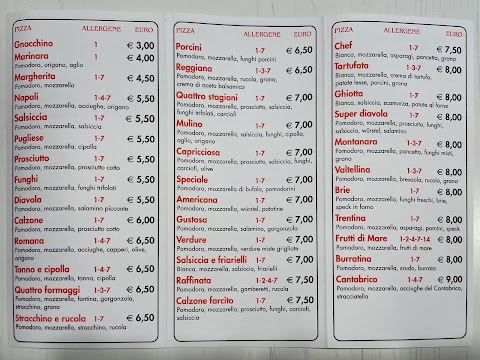 PIZZA ALLERGENE EURO
Gnocchino 1 € 3,00
Marinara 1 € 4,00
Pomodoro, origano, aglio
Margherita 1-7 € 4,50
Pomodoro, mozzarella
Napoli 1-4-7 € 5,50
Pomodoro, mozzarella, acciughe, origano
Salsiccia 1-7 € 5,50
Pomodoro, mozzarella, salsiccia
Pugliese 1-7 € 5,50
Pomodoro, mozzarella, cipolla
Prosciutto 1-7 € 5,50
Pomodoro, mozzarella, prosciutto cotto
Funghi 1-7 € 5,50
Pomodoro, mozzarella, funghi trifolati
Diavola 1-7 € 5,50
Pomodoro, mozzarella, salamino piccante
Calzone 1-7 € 6,00
Pomodoro, mozzarella, prosciutto cotto
Romana 1-4-7 € 6,50
Pomodoro, mozzarella, acciughe, capperi, olive,
origano
Tonno e cipolla 1-4-7 € 6,50
Pomodoro, mozzarella, tonno, cipolla
Quattro formaggi 1-3-7 € 6,50
Pomodoro, mozzarella, fontina, gorgonzola,
stracchino, grana
Stracchino e rucola 1-7 € 6,50
Pomodoro, mozzarella, stracchino, rucola
PIZZA ALLERGENE EURO
Porcini 1-7 € 6,50
Pomodoro, mozzarella, funghi porcini
Reggiana 1-3-7 € 6,50
Pomodoro, mozzarella, rucola, grana,
crema di aceto balsamico
Quattro stagioni 1-7 € 7,00
Pomodoro, mozzarella, prosciutto, salsiccia,
funghi trifolati, carciofi
Mulino 1-7 € 7,00
Pomodoro, mozzarella, salsiccia, funghi, cipolla,
aglio, origano
Capricciosa 1-7 € 7,00
Pomodoro, mozzarella, prosciutto, salsiccia, funghi,
carciofi, olive
Speciale 1-7 € 7,00
Pomodoro, mozzarella di bufala, pomodorini
Americana 1-7 € 7,00
Pomodoro, mozzarella, würstel, patatine
Gustosa 1-7 € 7,00
Pomodoro, mozzarella, salamino, gorgonzola
Verdure 1-7 € 7,00
Pomodoro, mozzarella, verdure miste grigliate
Salsiccia e friarielli 1-7 € 7,00
Bianca, mozzarella, salsiccia, friarielli
Raffinata 1-2-4-7 € 7,50
Pomodoro, mozzarella, gamberetti, rucola
Calzone farcito 1-7 € 7,50
Pomodoro, mozzarella, prosciutto, funghi, carciofi,
salsiccia
PIZZA ALLERGENE EURO
Chef 1-7 € 7,50
Bianca, mozzarella, asparagi, pancetta, grana
Tartufata 1-3-7 € 8,00
Bianca, mozzarella, crema di tartufo,
patate lesse, porcini, grana
Ghiotta 1-7 € 8,00
Bianca, salsiccia, scamorza, patate al forno
Super diavola 1-7 € 8,00
Pomodoro, mozzarella, prosciutto, funghi,
salsiccia, würstel, salamino
Montanara 1-3-7 € 8,00
Pomodoro, mozzarella, pancetta, funghi misti,
grana
Valtellina 1-3-7 € 8,00
Pomodoro, mozzarella, bresaola, rucola, grana
Brie 1-7 € 8,00
Pomodoro, mozzarella, funghi freschi, brie,
speck in forno
Trentina 1-7 € 8,00
Pomodoro, mozzarella, asparagi, porcini, speck
Frutti di Mare 1-2-4-7-14 € 8,00
Pomodoro, mozzarella, frutti di mare
Burratina 1-7 € 8,00
Pomodoro, mozzarella, crudo, burrata
Cantabrico 1-4-7 € 9,00
Pomodoro, mozzarella, acciughe del Cantabrico,
stracciatella